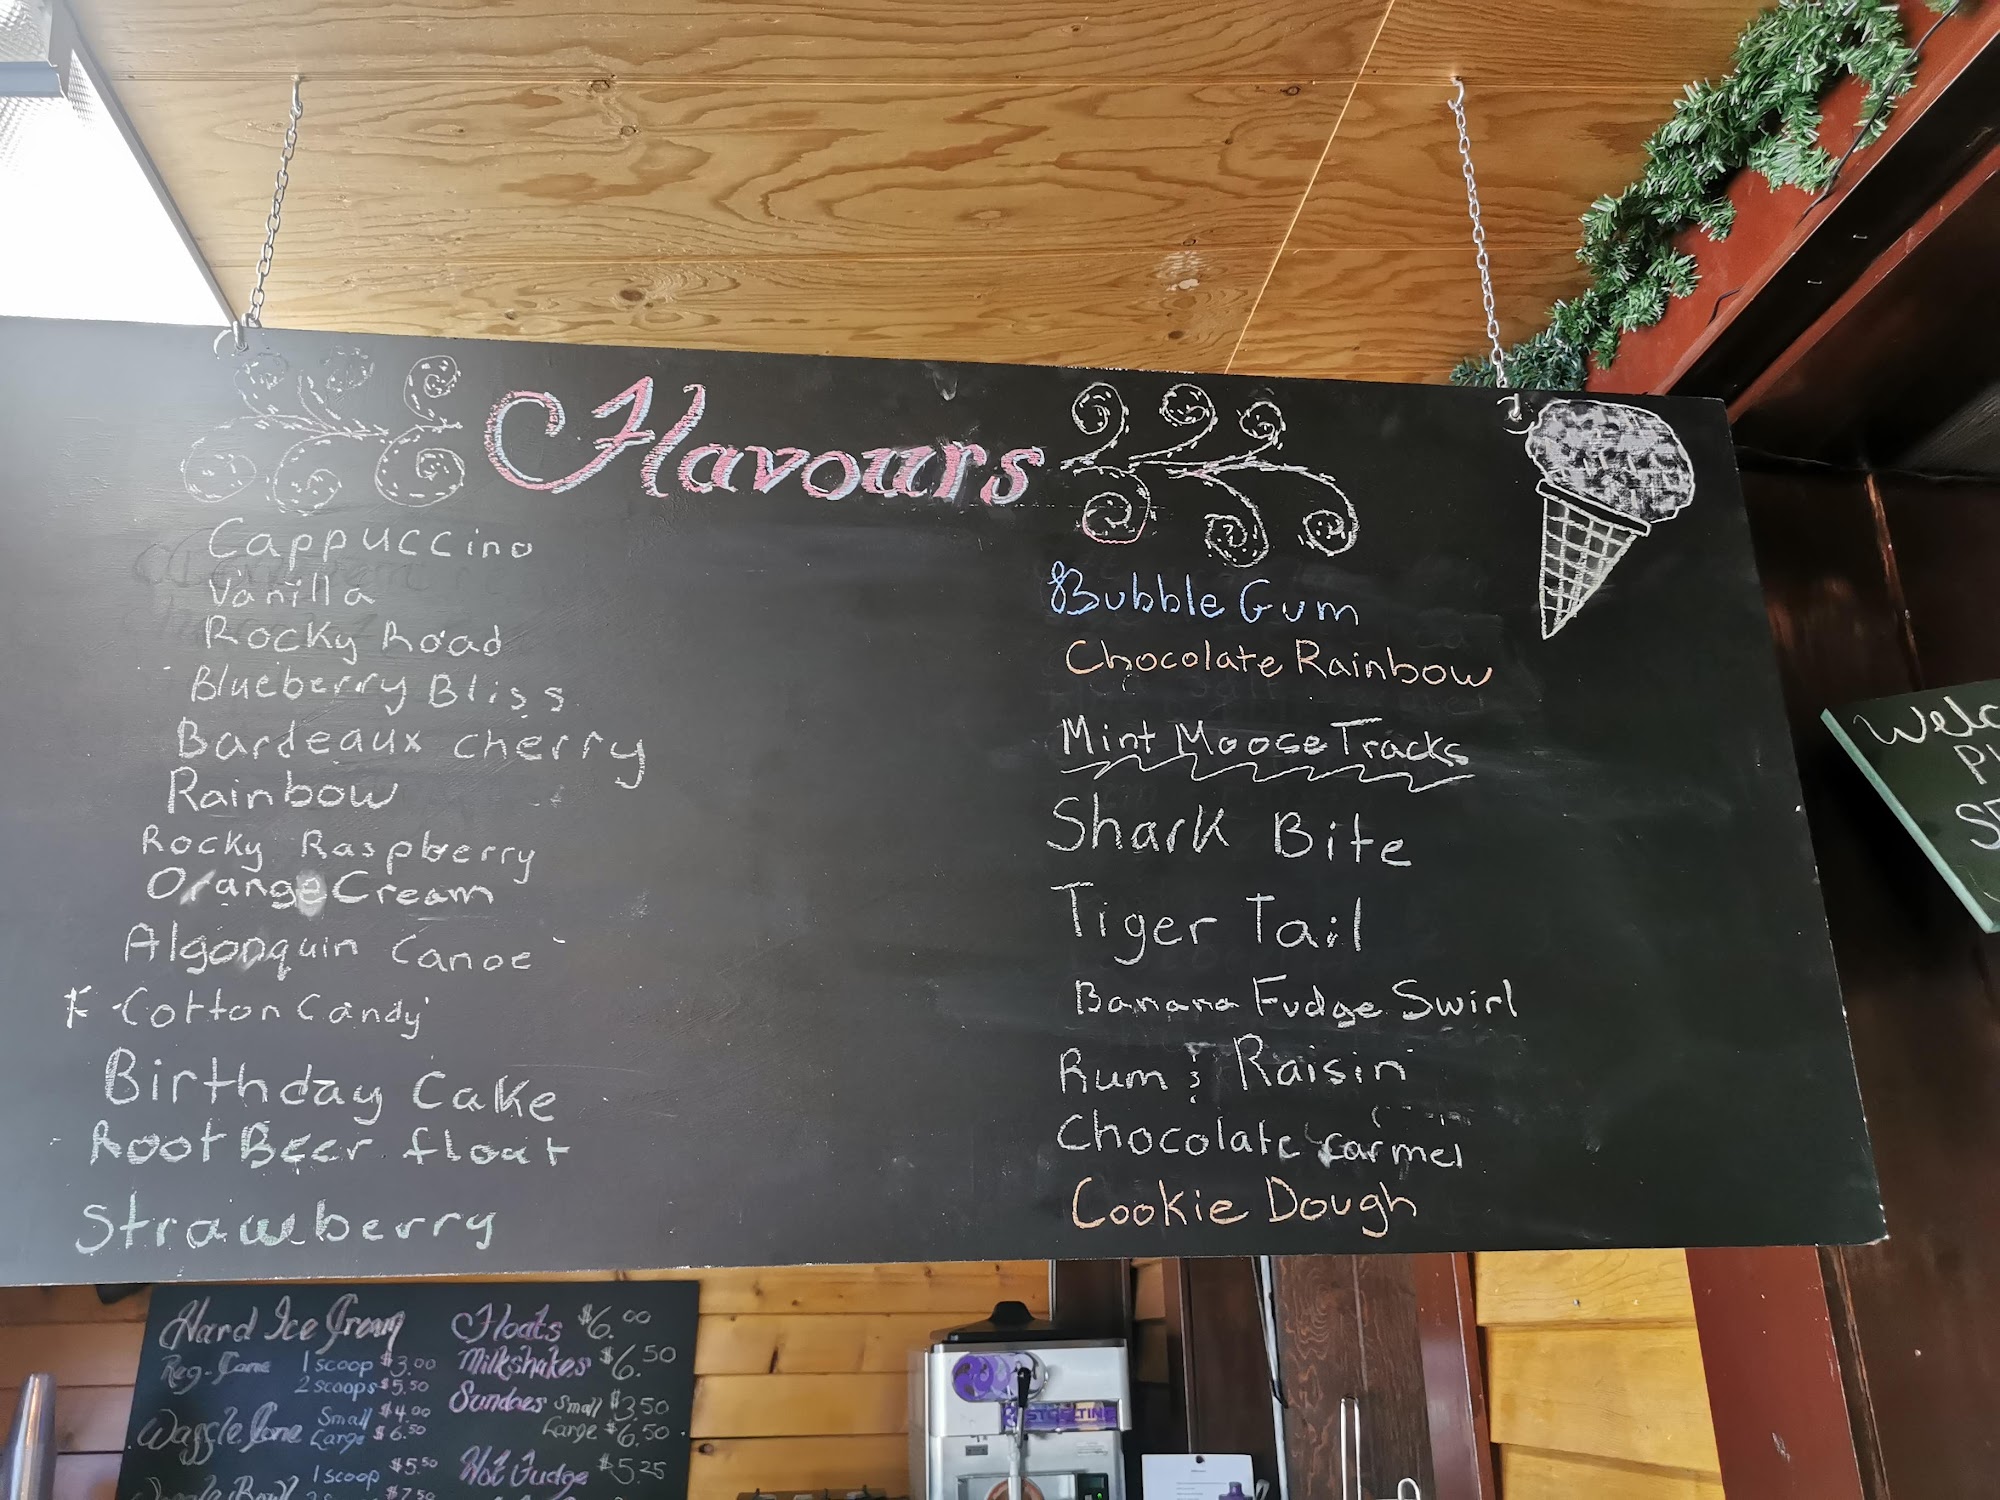 Flavours
Cappuccino
Vanilla
Rocky Road
Blueberry Bliss
Bardeaux cherry
Rainbow
Rocky Raspberry
Orange Cream
Algonquin Canoe
Cotton Candy
Birthday Cake
Root Beer float
Strawberry
Bubble Gum
Chocolate Rainbow
Mint Moose Tracks
Shark Bite
Tiger Tail
Banana Fudge Swirl
Rum & Raisin
Chocolate carmel
Cookie Dough
Hard Ice Cream
Reg. Cone 1 scoop $3.00
2 scoops $5.50
Waffle Cone Small $4.00
Large $6.50
1 scoop $5.50
$7.50
Floats $6.00
Milkshakes $6.50
Sundaes Small $3.50
Large $6.50
Hot Fudge $5.25
STOELTING